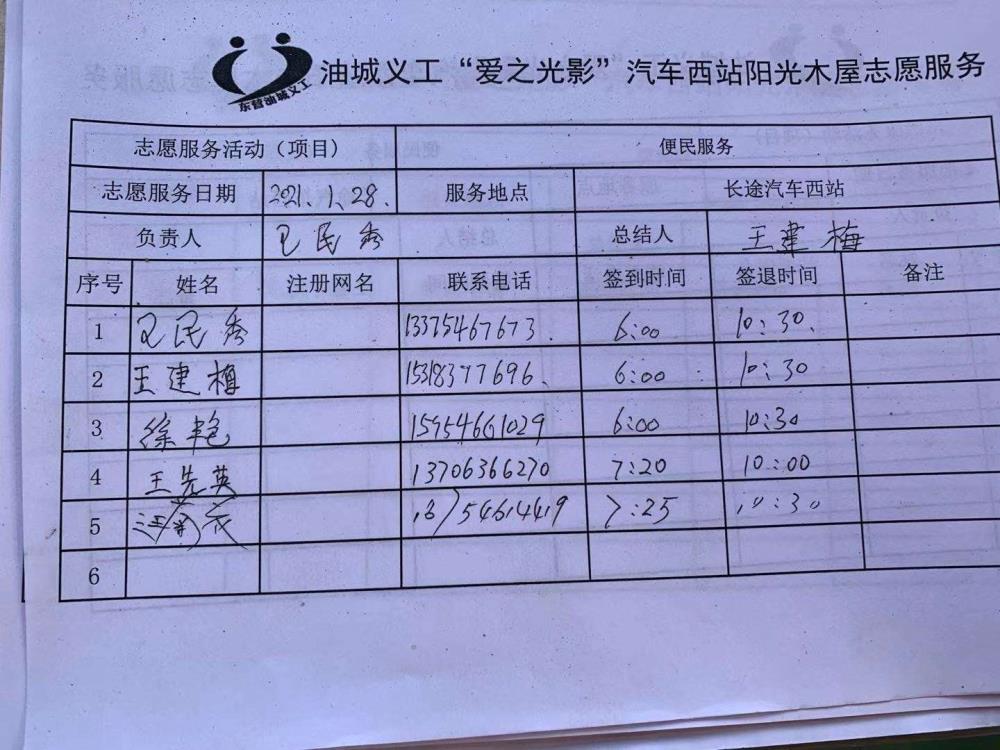 东营油城义工
油城义工“爱之光影”汽车西站阳光木屋志愿服务
志愿服务活动（项目） 便民服务
志愿服务日期 2021.1.28. 服务地点 长途汽车西站
负责人 民秀 总结人 王建梅
序号 姓名 注册网名 联系电话 签到时间 签退时间 备注
1 民秀 13375467673 6:00 10:30.
2 王建梅 15318377696. 6:00 10:30
3 徐艳 15954661029 6:00 10:30
4 王先英 13706366270 7:20 10:00
5 7:25 10:30
6